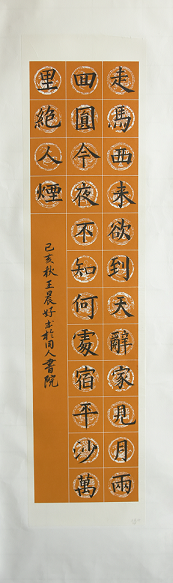 走馬西来欲到天辭家見月兩
回圓今夜不知何處宿平沙萬
里絶人煙
己亥秋王晨好书於同人書院